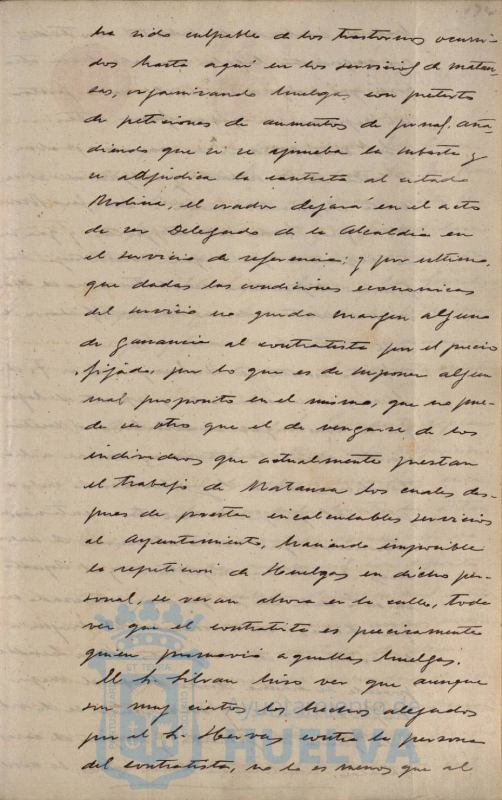 ha sido culpable de los trastornos ocurri-
dos hasta aquí en los servicios de matan-
sas, organizando huelgas, con pretexto
de peticiones de aumentos de jornal, aña-
diendo que si se aprueba la subasta y
se adjudica la contrata al citado
Molina, el orador dejará en el acto
de ser Delegado de la Alcaldia en
el servicio de referencia; y por ultimo,
que dadas las condiciones economicas
del servicio no queda margen alguno
de ganancia al contratista por el precio
fijado, por lo que es de suponer algun
mal proposito en el mismo, que no pue-
de ser otro que el de vengarse de los
individuos que actualmente prestan
el trabajo de Matansa los cuales des-
pues de prestar incalculables servicios
al Ayuntamiento, haciendo imposible
la repeticion de Huelgas en dicho per-
sonal, se veran ahora en la calle, toda
vez que el contratista es precisamente
quien promovió aquellas huelgas.
El Sr. Silvan hizo ver que aunque
son muy ciertos los hechos alegados
por el Sr. Hervas contra la persona
del contratista, no lo es menos que al
Ayuntamiento de
HUELVA